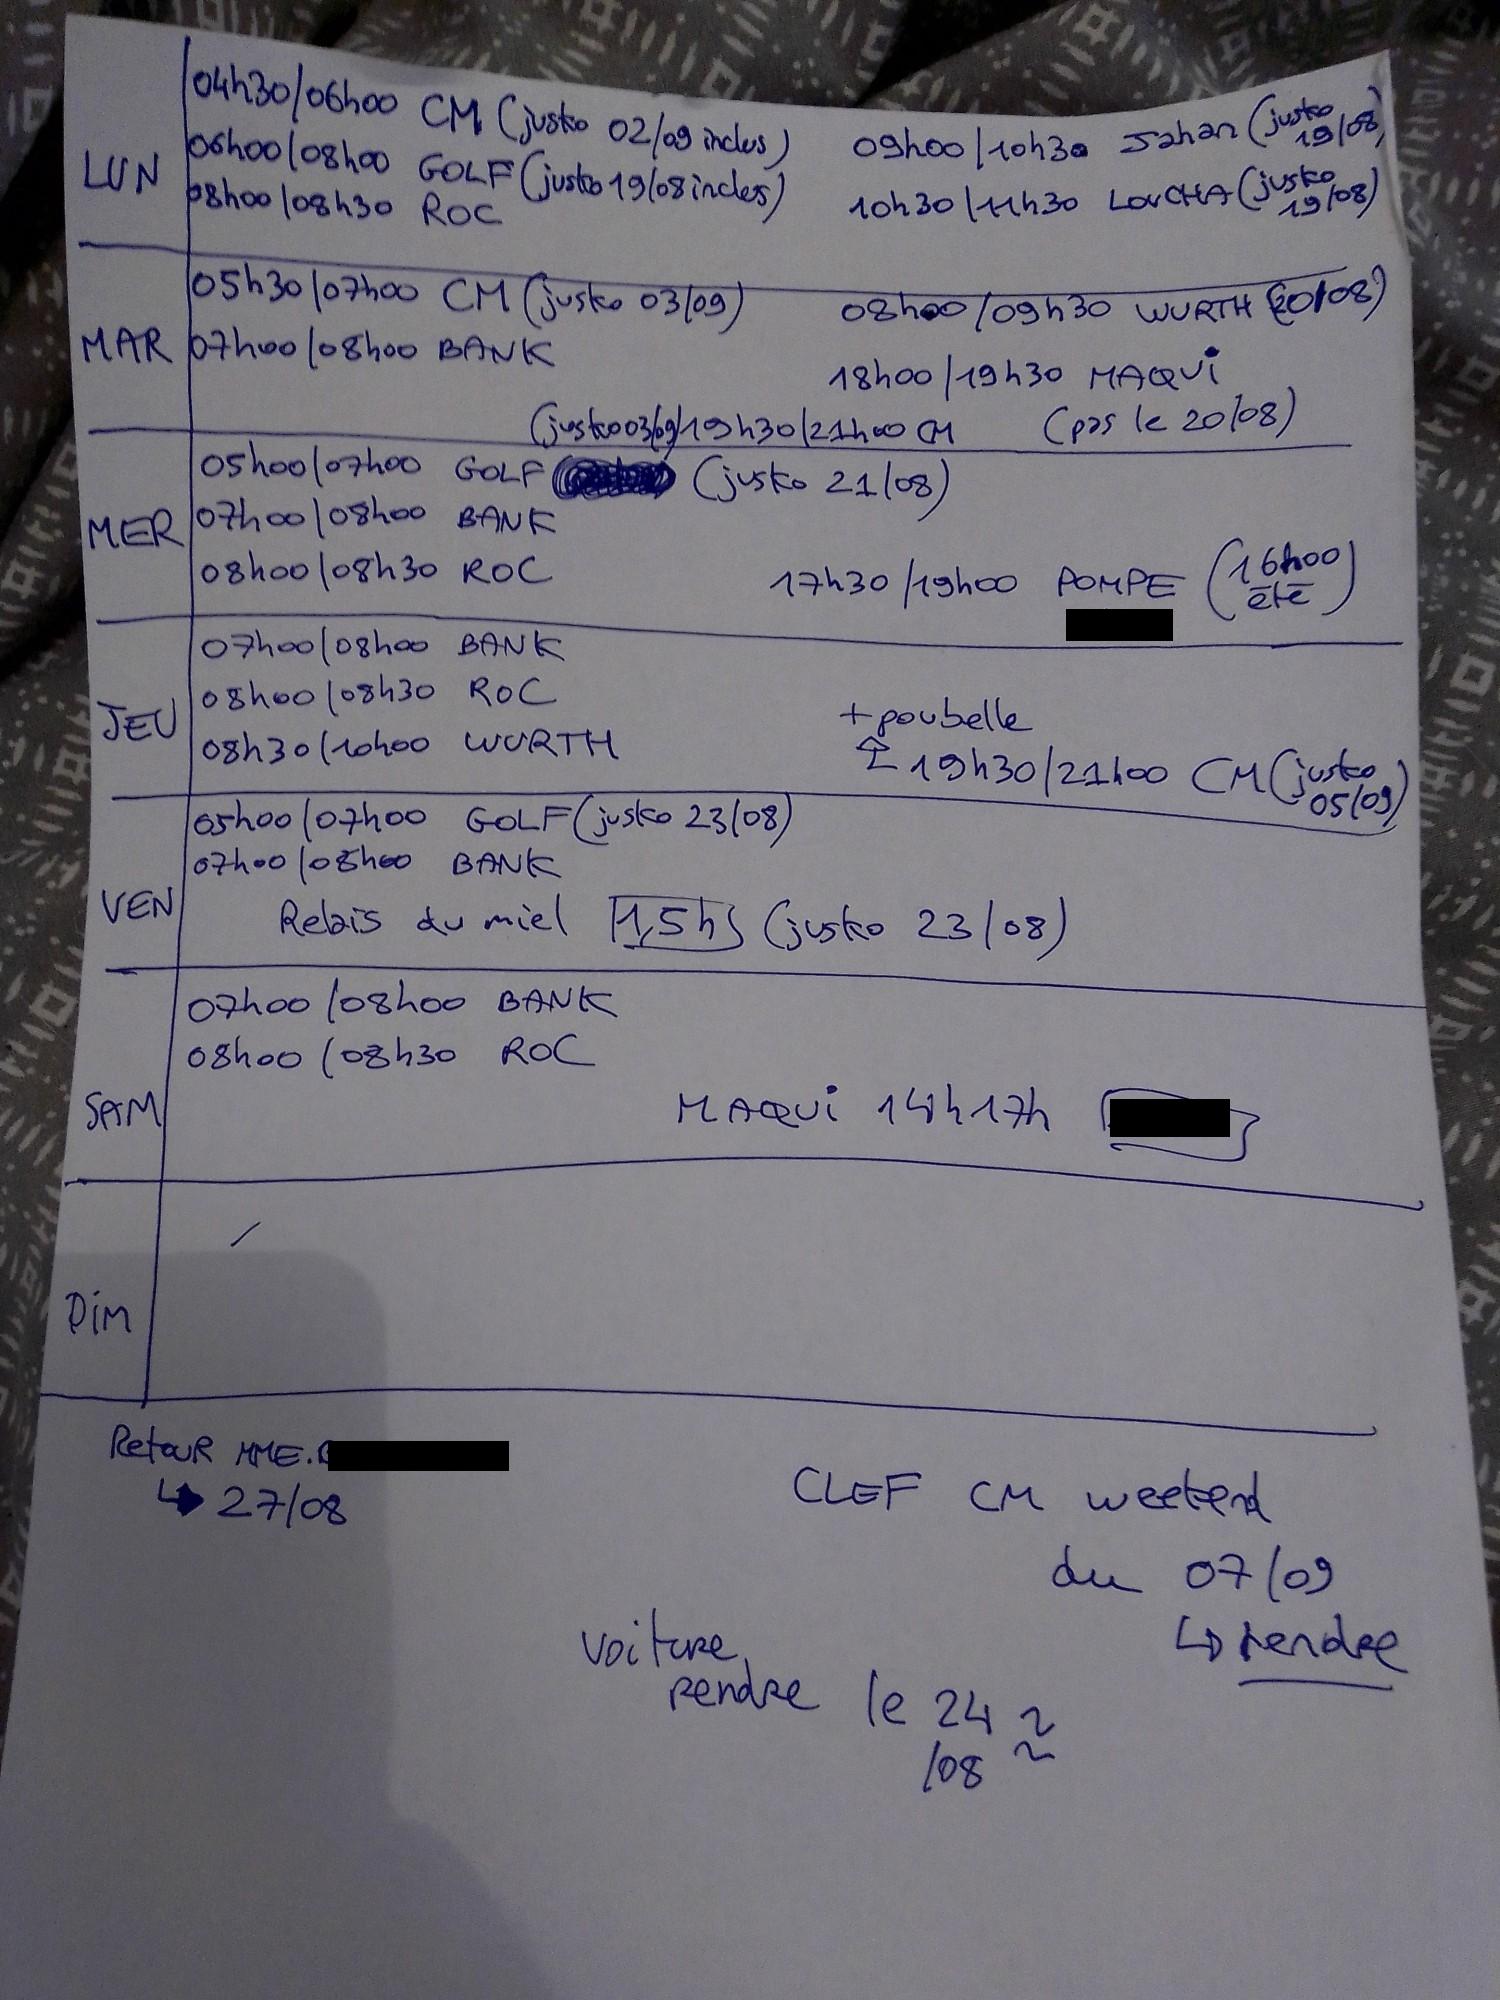 LUN
04h30/06h00 CM (jusko 02/09 inclus)
06h00/08h00 GOLF (jusko 19/08 inclus)
08h00/08h30 ROC
09h00/10h30 Jahan (jusko 19/08)
10h30/11h30 LOUCHA (jusko 19/08)
MAR
05h30/07h00 CM (jusko 03/09)
07h00/08h00 BANK
08h00/09h30 WURTH (20/08)
18h00/19h30 MAQUi
(pas le 20/08)
(jusko 03/09) 19h30/21h00 CM
MER
05h00/07h00 GOLF (jusko 21/08)
07h00/08h00 BANK
08h00/08h30 ROC
17h30/19h00 POMPE (16h00 été)
JEU
07h00/08h00 BANK
08h00/08h30 ROC
08h30/10h00 WURTH
+ poubelle
19h30/21h00 CM (jusko 05/09)
VEN
05h00/07h00 GOLF (jusko 23/08)
07h00/08h00 BANK
Relais du miel 1,5h (jusko 23/08)
SAM
07h00/08h00 BANK
08h00/08h30 ROC
MAQUi 14h17h
DiM
/
Retour MME.
↳ 27/08
CLEF CM weekend
du 07/09
↳ rendre
voiture
rendre le 24
/08